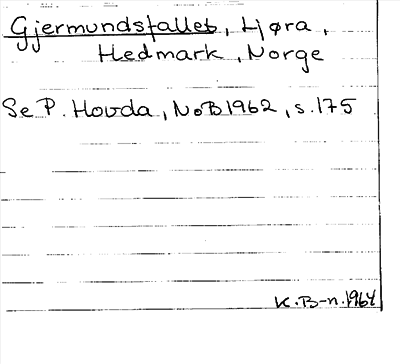 Gjermundsfallet, Ljøra,
Hedmark, Norge
Se P. Hovda, NoB 1962, s. 175
K. B-n. 1964